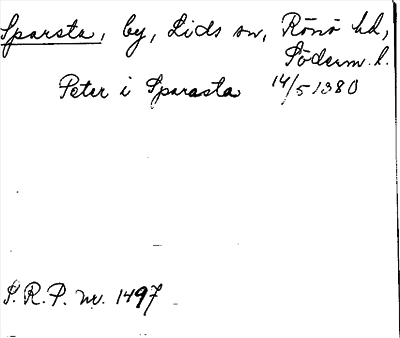 Sparsta, by, Lids sn, Rönö hd,
Söderm. l.
Peter i Sparasta 14/5 1380
S.R.P. nr. 1497